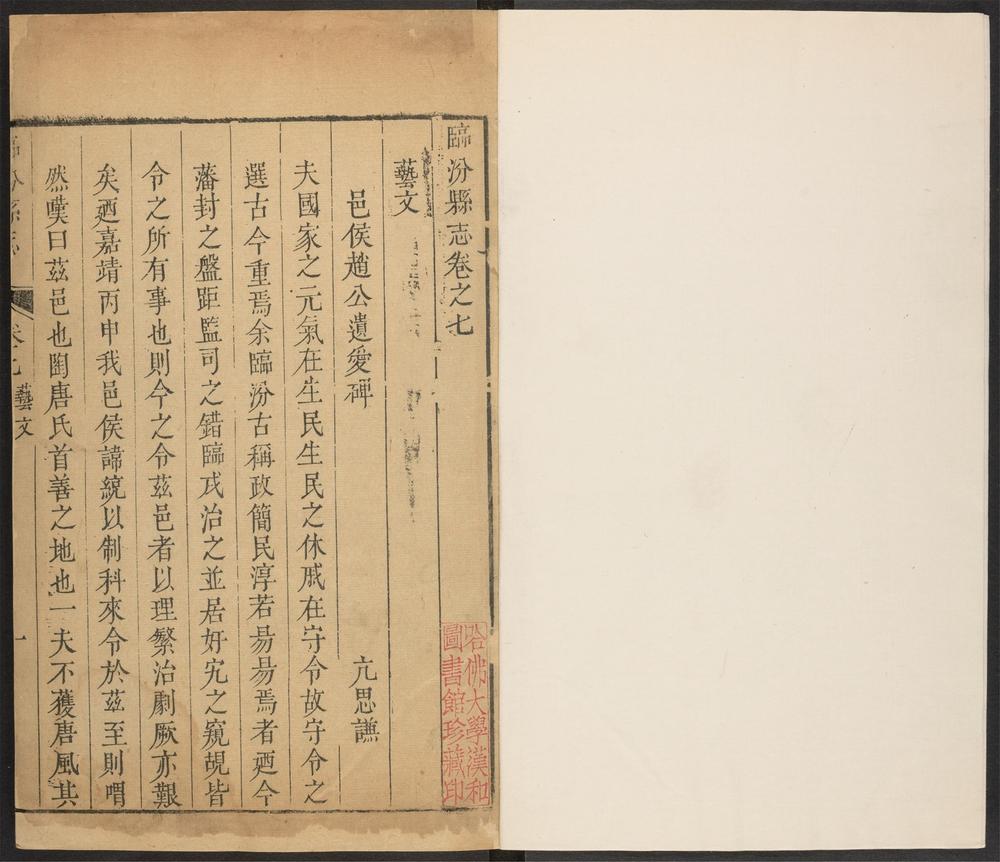 臨汾縣志卷之七
哈佛大學漢和
圖書館珍藏印
藝文
邑侯趙公遺愛碑
亢思謙
夫國家之元氣在生民生民之休戚在守令故守令之
選古今重焉余臨汾古稱政簡民淳若昜昜焉者廼今
藩封之盤距監司之錯臨戎治之並居奸宄之窺覘皆
令之所有事也則今之令茲邑者以理繁治劇厥亦艱
矣廼嘉靖丙申我邑侯諱統以制科來令於茲至則喟
然嘆曰茲邑也陶唐氏首善之地也一夫不獲唐風其
藝文
一